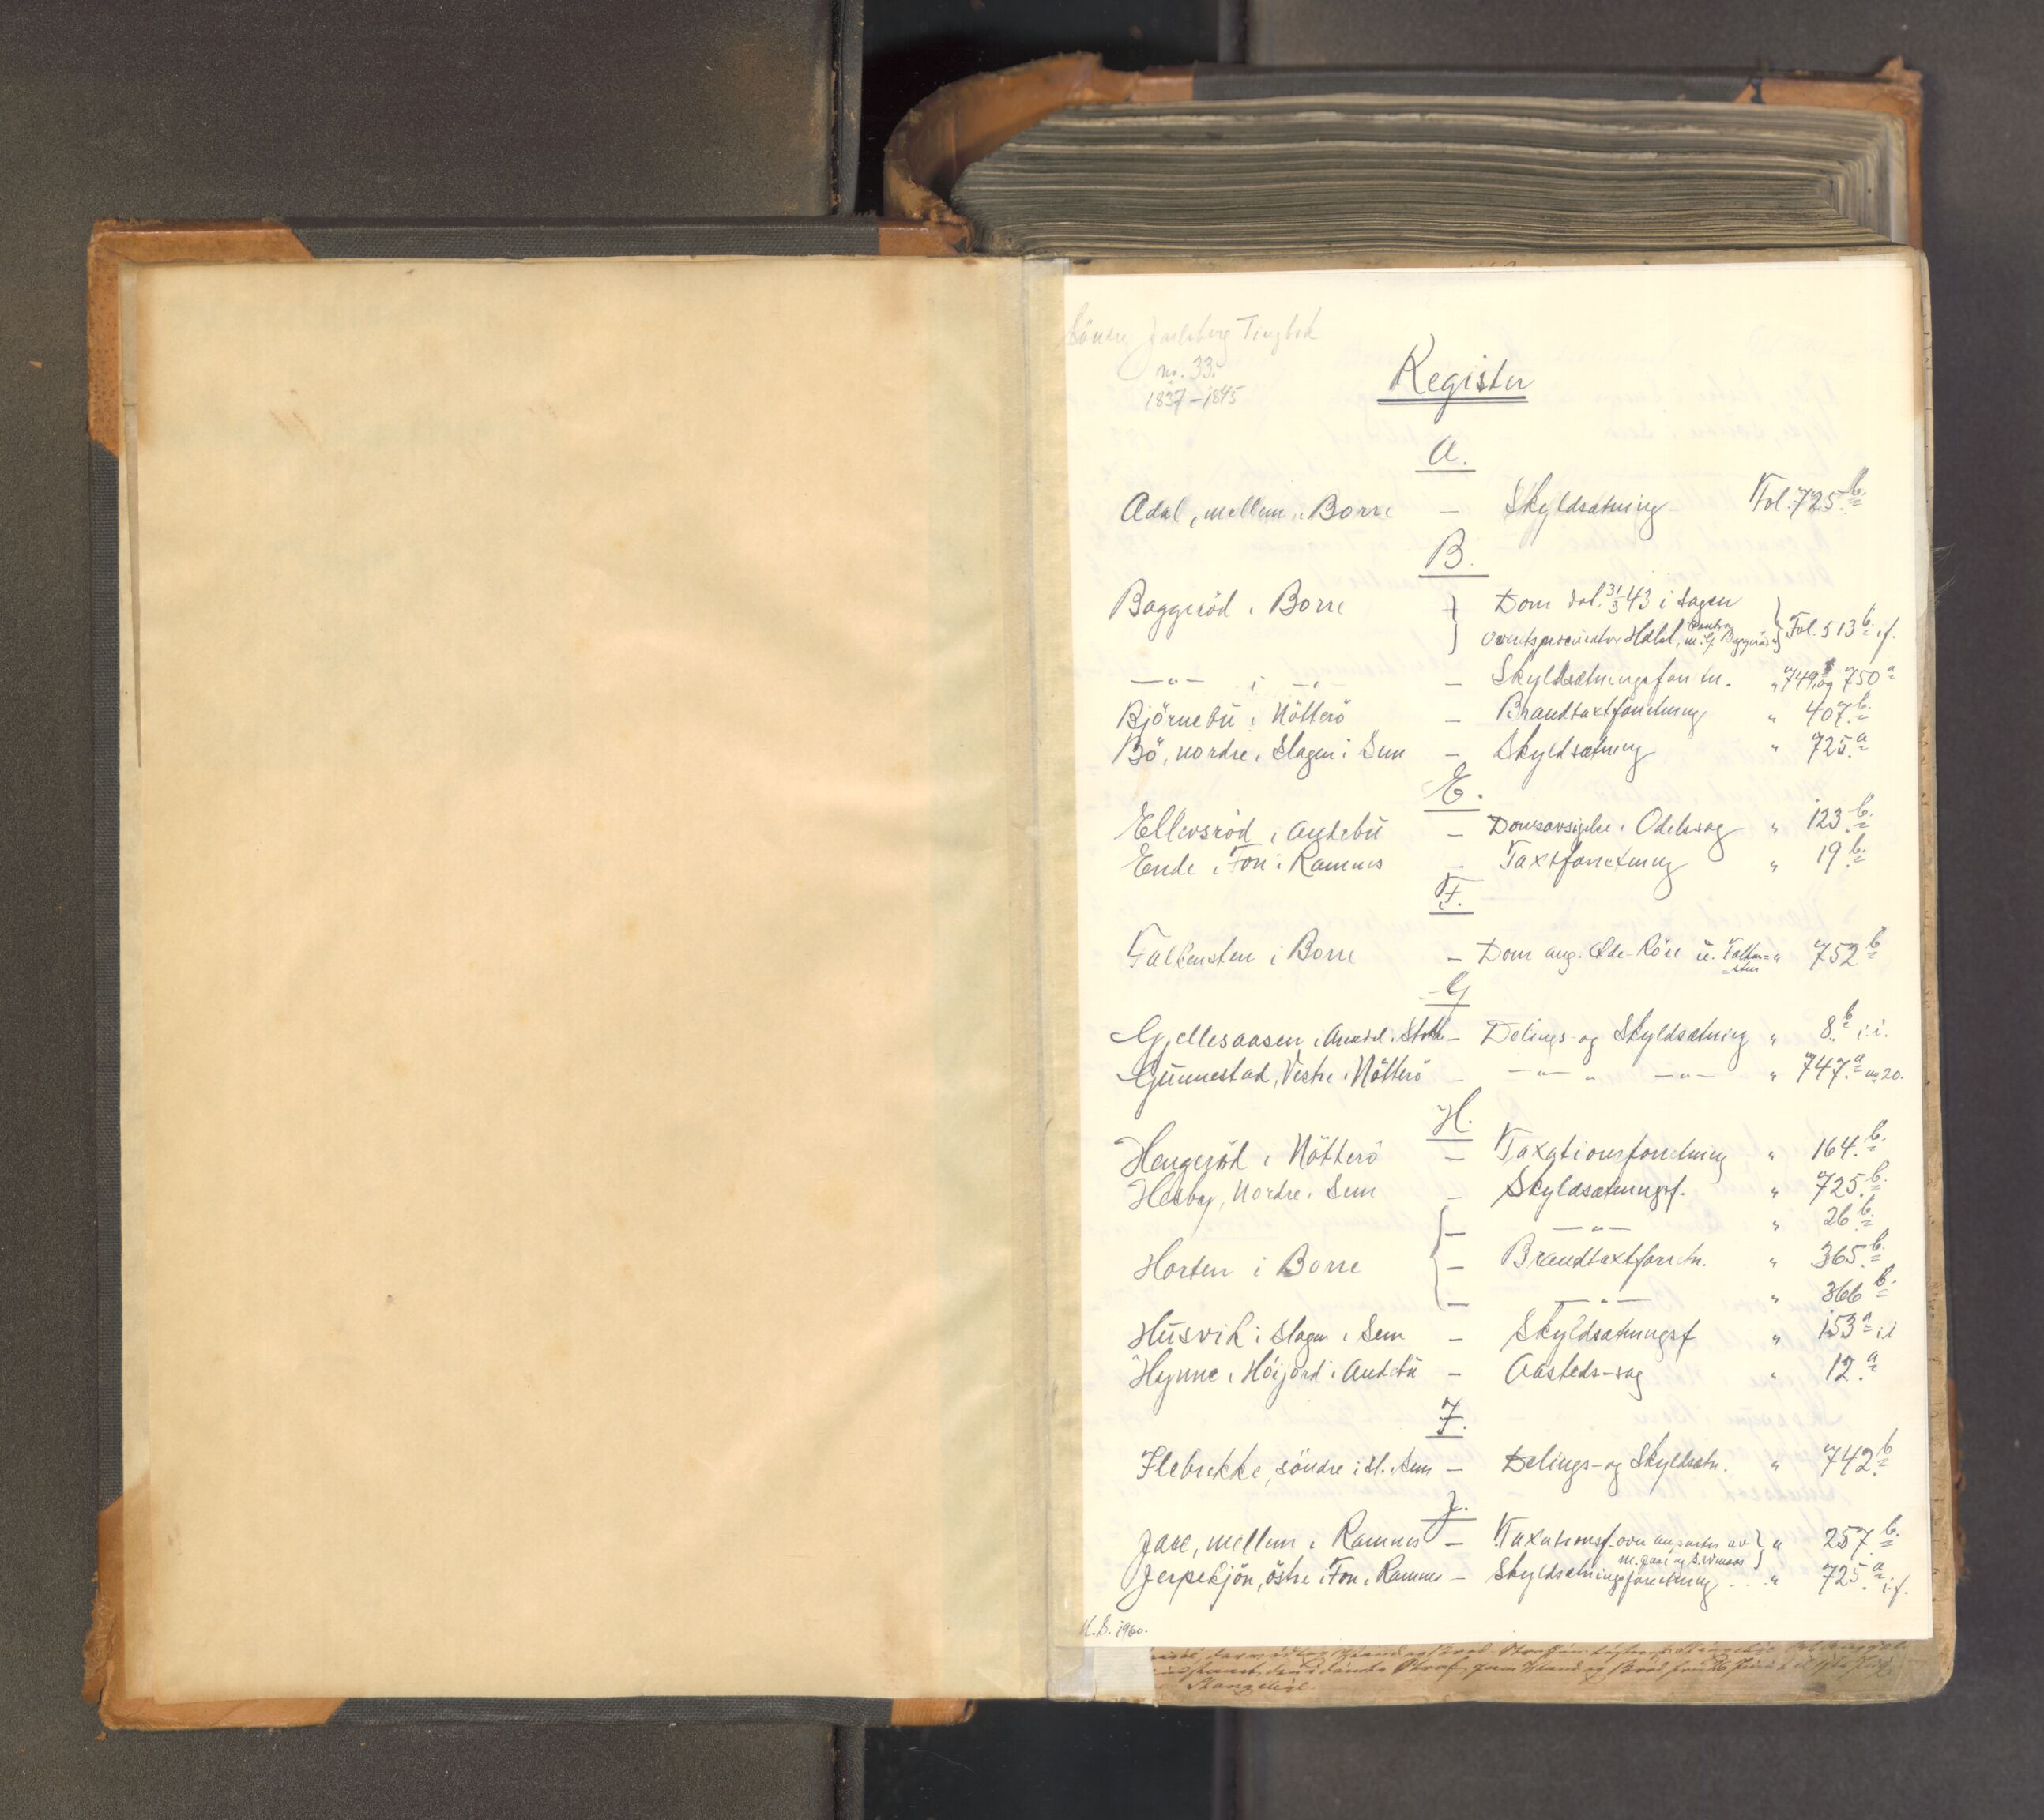 Söndre Jarlsberg Tingbok
no. 33.
1837-1845
Register
A.
Adal, mellem i Borre - Skyldsætning - Fol. 725 b.
B.
Baggeröd i Borre } Dom dat. 31/3 43 i sagen
Overetsprocurator Hdal, contra m. fl. Baggeröd } Fol. 513 b. i f.
-"- i -"- - Skyldsætningsforretn. " 749 b og 750 a
Björnebu i Nötterö - Brandtaxtforretning " 407 b.
Bö, nordre, Slagen i Sem - Skyldsætning " 725 a
E.
Ellevsröd i Andebu - Domsavsigelse i Odelssag " 123 b.
Ende i Fon i Ramnes - Taxtforretning " 19 b.
F.
Falkensten i Borre - Dom ang. Öde-Röre u. Falken- " 752 b
sten
G
Gjellesaasen i Arendal i Stokke - Delings- og Skyldsætning " 8 b i.i.
Gunnestad, Vestre i Nötterö - -"- " -"- " 747 a no 20.
H.
Hengeröd i Nötterö - Taxationsforretning " 164 b.
Hesby, Nordre i Sem - Skyldsætningsf. " 725 b.
{ - -"- " 26 b.
Horten i Borre { - Brandtaxtforretn. " 365 b.
{ - -"- " 366 b.
Husvik i Slagen i Sem - Skyldsætningsf " 153 a i i
Hynne i Höijord i Andebu - Aasteds-sag " 12 a
I.
Ilebrekke, söndre i Sl. i Sem - Delings- og Skyldsætn. " 742 b
J.
Jare, mellem i Ramnes - Taxationsf. over anparter av } " 257 b.
m. Jare og S.
Jerpekjön, östre i Fon i Ramnes - Skyldsætningsforretning .. " 725 a i f.
1960.
Stangebye